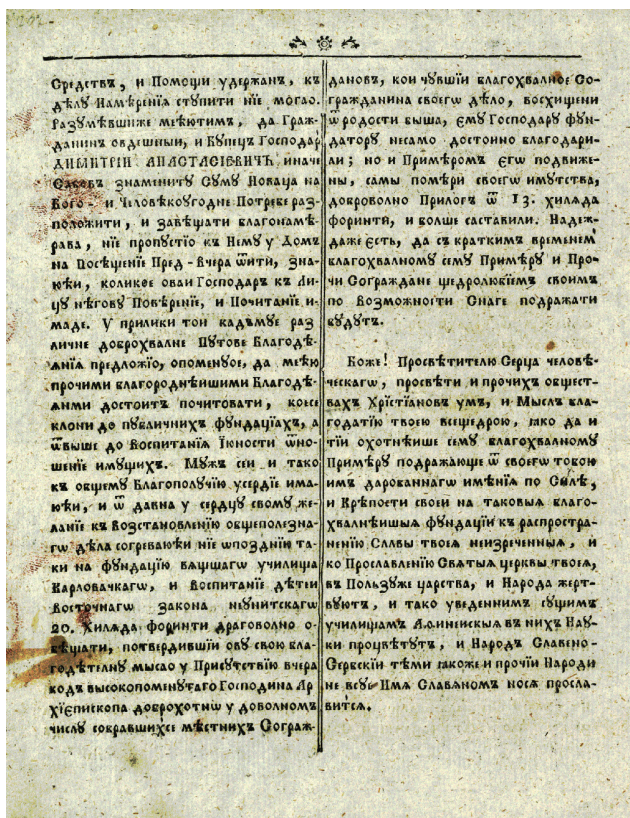 Средствъ, и Помощи удержан, къ
дѣлу Намѣренія ступити нїе могао.
Разумѣвшиже меѥютимъ, да Граж-
данинъ овдешныи, и Купецъ Господар
ДИМИТРІИ АНАСТАСІЕВИЧЪ иначе
знамениту Суму Новаца на
Бого- и Человѣкоугодне Потребе раз-
положити, и завѣщати благонамѣ-
рава, нїе пропустїо къ Нему у Домъ
на Посѣщенїе Пред-вчера ѿити, зна-
юћи, коликое оваи Господаръ къ Ли-
цу нѣгову Повѣренїе, и Почитанїе и-
маде. У прилики тои кадъмуе раз
личне доброхвалне Путове Благодѣ-
янїя предложїо, опоменуое, да меѥю
прочими благороднѣишими Благодѣ-
янми достоитъ почитовати, коесе
клони до публичнихъ фундацїахъ, а
ѿвыше до Воспитанїя Їюности ѿно-
шенїе имущихъ. Мужъ сеи и тако
къ общему Благополучїю усердїе има-
юћи, и ѿ давна у сердцу свому же-
ланїе къ Возстановленїю общеполезна-
гѡ дѣла согреваюћи нїе ѡпозднїю та-
ки на фундацїю вящшагѡ училища
Карловачкагѡ, и Воспитанїе дѣтеи
Восточнагѡ закона неунїтскагѡ
20. Хиляда форинти драговолно о-
бѣщати, потвердившїи ову свою бла-
годѣтелну мысао у Присутствїю вчера
кодъ высокопоменутаго Господина Ар
хїепископа доброхотнѡ у доволномъ
числу собравшихсе мѣстнихъ Сограж-
дановъ, кои чувшїи благохвалное Со-
гражданина своегѡ дѣло, восхищени
ѿ родости быша, ему Господару фун-
датору несамо достоино благодари-
ли; но и Примѣромъ егѡ подвиже-
ны, самы помѣри своегѡ имутства,
доброволно Прилогъ ѿ 13. хиляда
форинти, и болше саставили. Надеж-
даже есть, да съ краткимъ временемъ
благохвалному сему Примѣру и Про-
чи Сограждане щедролюбїемъ своимъ
по Возможности Снаге подражати
будутъ.
Боже! Просвѣтителю Серца человѣ-
ческагѡ, просвѣти и прочихъ общест-
вахъ Хрїстїановъ умъ, и Мыслъ бла-
годатїю твоею всещедрою, яко да и
тїи охотнѣише сему благохвалному
Примѣру подражающе ѿ своегѡ тобою
имъ дарованнагѡ имѣнїя по Сылѣ,
и Крѣпости своеи на таковыя благо-
хвалнѣишыя фундацїи къ распростра-
ненїю Славы твоея неизреченныя, и
ко Прославленїю Святыя церквы твоея,
въ Пользуже царства, и Народа жерт-
вуютъ, и тако уведеннимъ сущимъ
училищамъ Аѳинейскїя въ нихъ Нау-
ки процвѣтутъ, и Народъ Славено-
Сербскїи тѣми якоже и прочїи Народи
не всуе Имя Славяномъ нося просля-
вится.